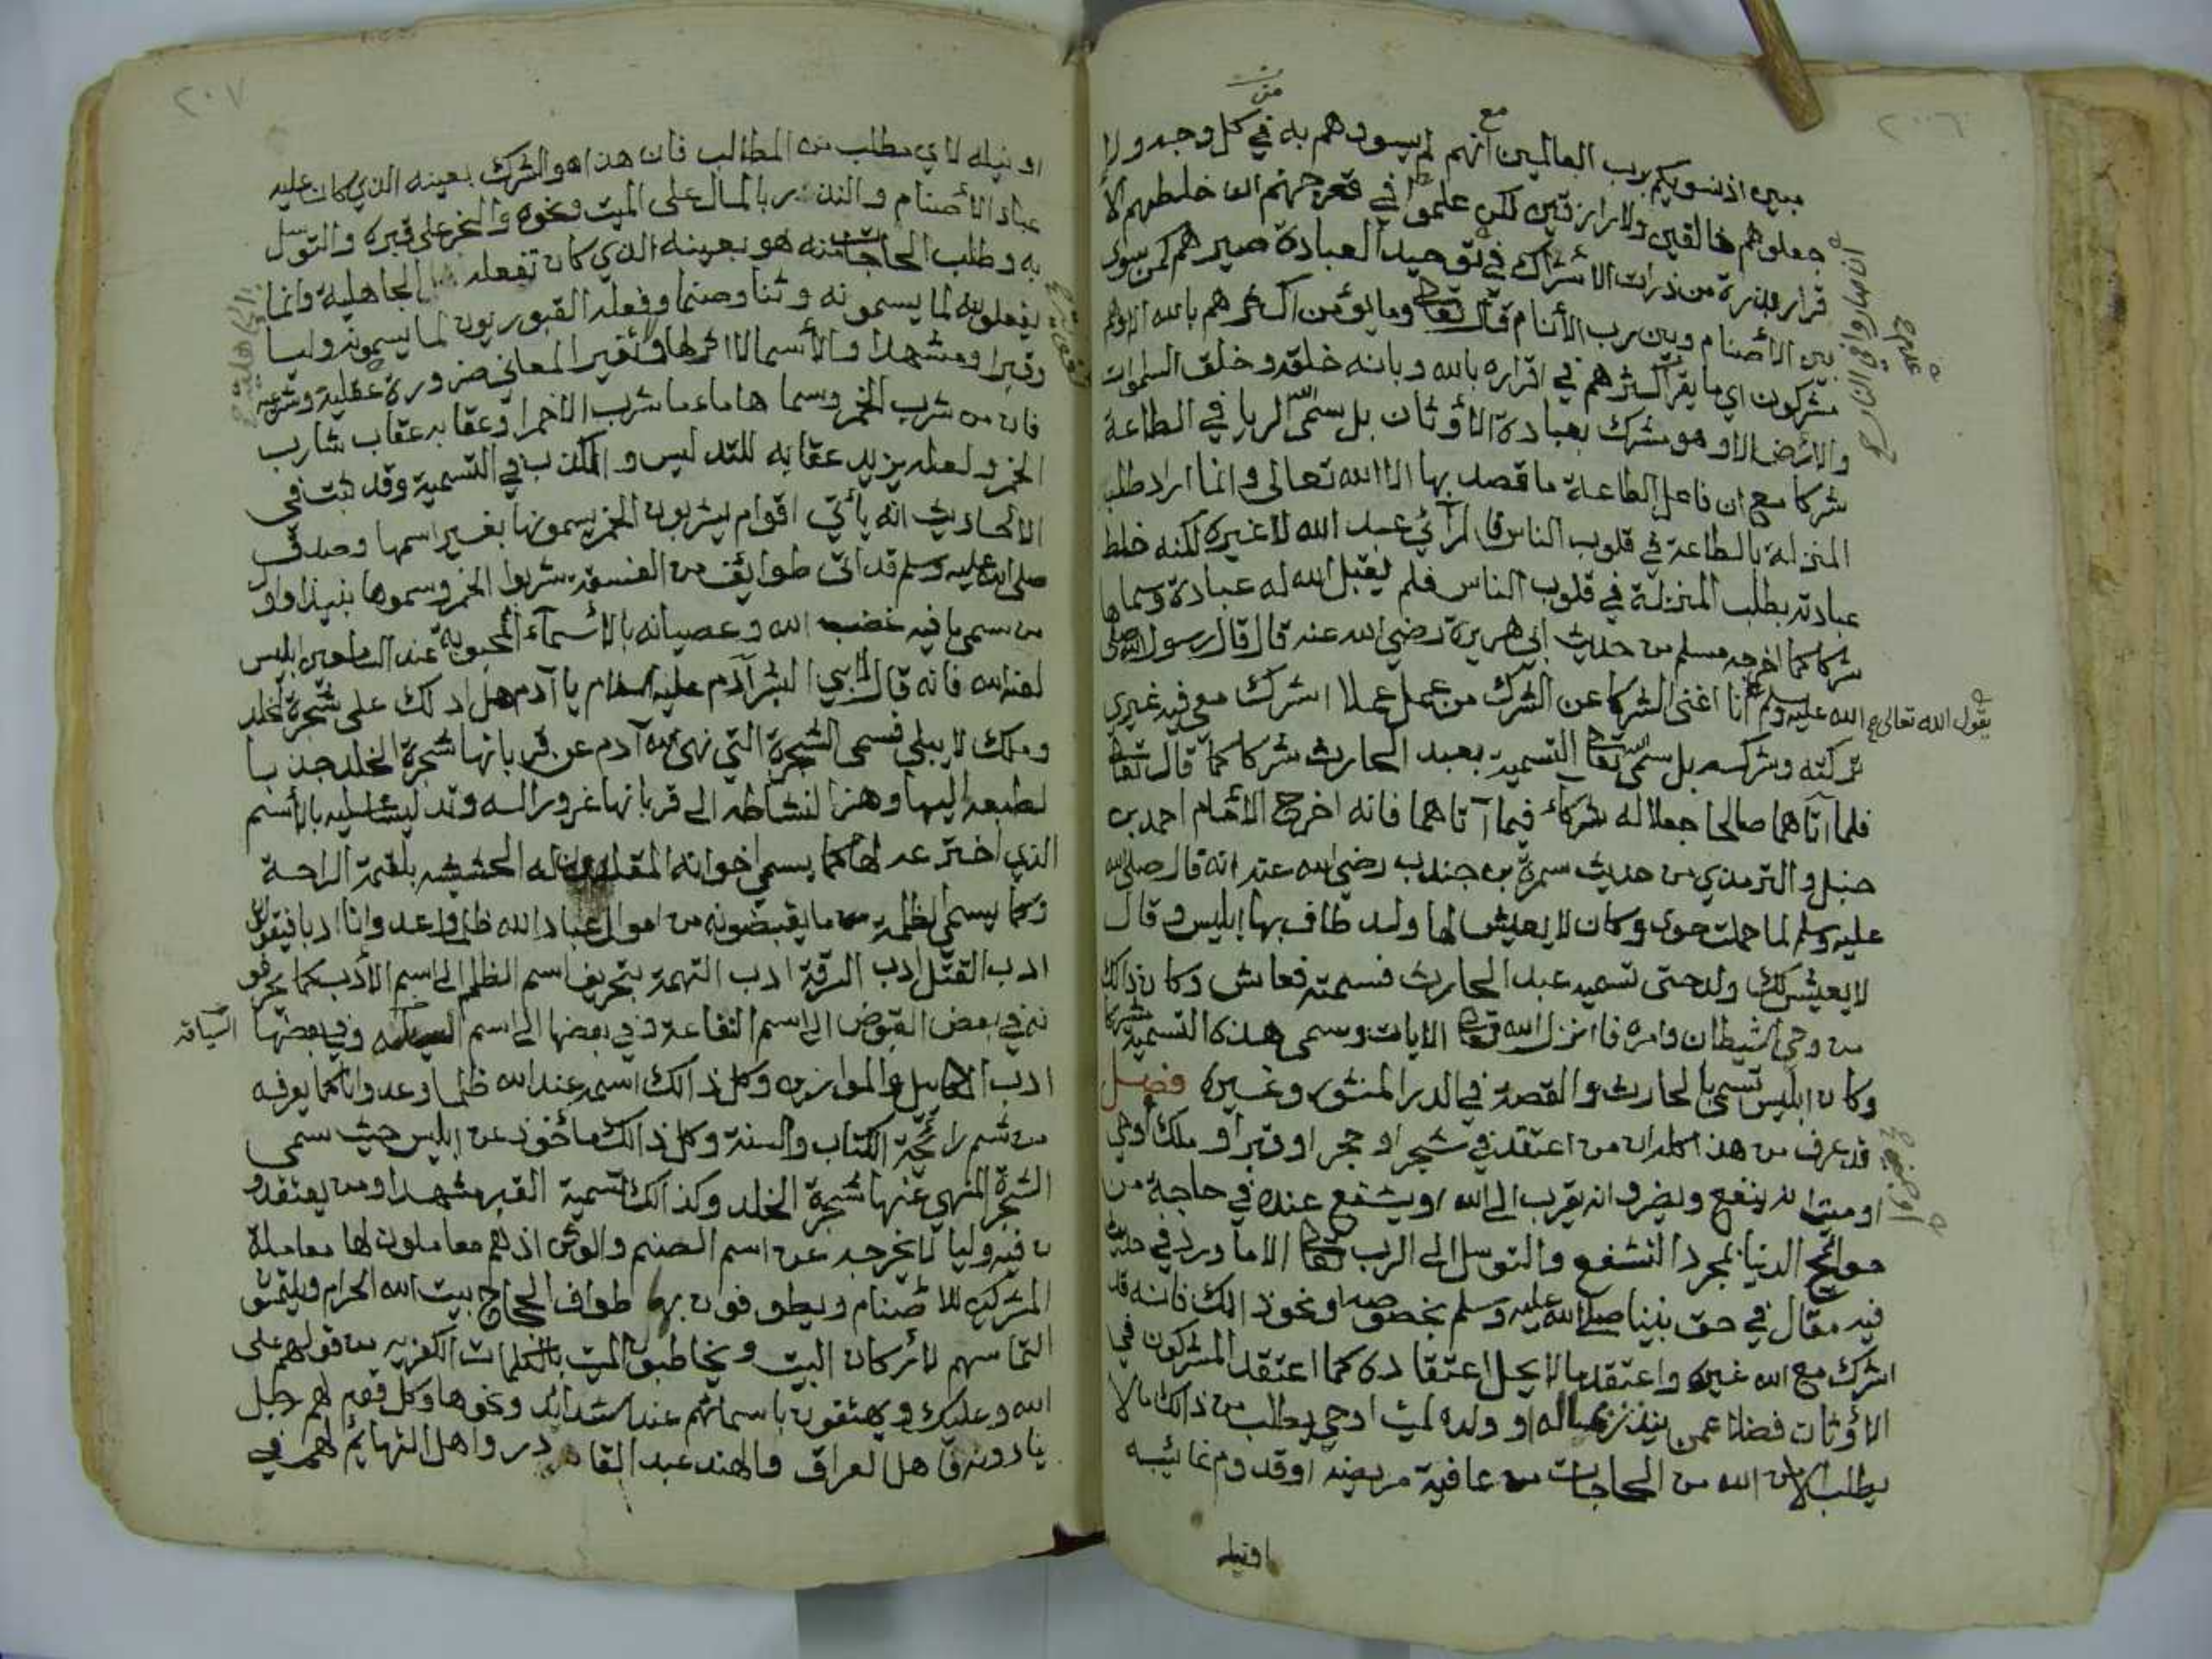 ٢٠٦
مبين اذ نسويكم برب العالمين مع انهم لم يسووهم به في كل وجه ولا
جعلوهم خالقين ولا رازقين لكن علموا في قعر جهنم ان خلطهم الا
قرار بذرة من ذرات الاشراك في توحيد العبادة صيرهم كمن سوى
بين الاصنام وبين رب الأنام قال تعالى وما يؤمن اكثرهم بالله الا وهم
مشركون اي ما يقر اكثرهم في اقراره بالله وبانه خلقه وخلق السموات
والارض الا وهو مشرك بعبادة الاوثان بل سمى الله الريا في الطاعة
شركا مع ان فاعل الطاعة ما قصد بها الا الله تعالى وانما اراد طلب
المنزلة بالطاعة في قلوب الناس فالمرآئي عبد الله لا غيره لكنه خلط
عبادته بطلب المنزلة في قلوب الناس فلم يقبل الله له عبادة وسماها
شركا كما اخرجه مسلم من حديث ابي هريرة رضي الله عنه قال قال رسول الله صلى
الله عليه وسلم انا اغنى الشركا عن الشرك من عمل عملا اشرك معي فيه غيري
يقول الله تعالى
تركته وشركه بل سمى الله تعالى التسمية بعبد الحارث شركا كما قال تعالى
فلما آتاهما صالحا جعلا له شركاء فيما آتاهما فانه اخرج الامام احمد بن
حنبل والترمذي من حديث سمرة بن جندب رضي الله عنه انه قال صلى الله
عليه وسلم لما حملت حوى وكان لا يعيش لها ولد طاف بها ابليس وقال
لا يعيش لك ولد حتى تسميه عبد الحارث فسمته فعاش وكان ذالك
من وحي الشيطان وامره فانزل الله تعالى الايات وسمى هذه التسمية شركا
وكان ابليس تسمى بالحارث والقصة في الدر المنثور وغيره فصل
قد عرف من هذا كله ان من اعتقد في شجر او حجر او قبر او ملك او جني
او ميتا انه ينفع ويضر او انه يقرب الى الله او يشفع عنده في حاجة من
حوائج الدنيا بمجرد التشفع والتوسل الى الرب تعالى الا ما ورد في حديث
فيه مقال في حق نبينا صلى الله عليه وسلم او نحو ذالك فانه قد
اشرك مع الله غيره واعتقد ما لا يحل اعتقاده كما اعتقد المشركون في
الاوثان فضلا عمن ينذر بماله او ولده لميت او حي يطلب من ذالك ما لا
يطلب الا من الله من الحاجات من عافية مريضه او قدوم غائبه
او نيله
٢٠٧
او نيله لاي مطلب من المطالب فان هذا هو الشرك بعينه الذي كان عليه
عباد الاصنام والنذر بالمال على الميت ونحوه والنحر على قبره والتوسل
به وطلب الحاجات منه هو بعينه الذي كان تفعله الجاهلية وانما
يفعلونه لما يسمونه وثنا وصنما وفعله القبوريون لما يسمونه وليا
وقبرا ومشهدا والأسما لا اثر لها ولا تغير المعاني ضرورة عقلية وشرعية
فان من شرب الخمر وسماها ماء ما شرب الا خمرا وعقابه عقاب شارب
الخمر ولعله يزيد عقابه للتدليس والكذب في التسمية وقد ثبت في
الاحاديث انه يأتي اقوام يشربون الخمر يسمونها بغير اسمها وصدق
صلى الله عليه وسلم قد اتى طوايف من الفسقة شربوا الخمر وسموها نبيذا واول
من سمى ما فيه غضب الله وعصيانه بالأسمآء المحبوبة عند السامعين ابليس
لعنه الله فانه قال لابي البشر آدم عليه السلام يا آدم هل ادلك على شجرة الخلد
وملك لا يبلى فسمى الشجرة التي نهى الله آدم عن قربانها شجرة الخلد جذبا
لطبعه اليها وهزا لنشاطه الى قربانها غرورا له وتدليسا عليه بالأسم
الذي اخترعه لها كما يسمي اخوانه المقلدون له الحشيشه بلقمة الراحة
وكما يسمي الظلمة ما يقبضونه من اموال عباد الله ظلما وعدوانا ادبا فيقولون
ادب القتل ادب السرقة ادب التهمة بتحريف اسم الظلم الى اسم الأدب كما يحرفو
نه في بعض القبوض الى اسم النفاعة وفي بعضها الى اسم السياقه وفي بعضها
السياقه
ادب المكاييل والموازين وكل ذالك اسمه عند الله ظلما وعدوانا كما يعرفه
من شم رائحة الكتاب والسنة وكل ذالك مأخوذ عن ابليس حيث سمى
الشجرة المنهي عنها شجرة الخلد وكذالك تسمية القبر مشهدا ومن يعتقدو
ن فيه وليا لا يخرجه عن اسم الصنم والوثن اذ هم معاملون لها معاملة
المشركين للاصنام ويطوفون بها طواف الحجاج ببيت الله الحرام ويلتمسون
التماسهم لاركان البيت ويخاطبون الميت بالكلمات الكفريه من قولهم على
الله وعليك ويهتفون باسمائهم عند الشدائد ونحوها وكل قوم لهم رجل
ينادونه فاهل العراق والهند عبد القادر واهل التهائم لهم في